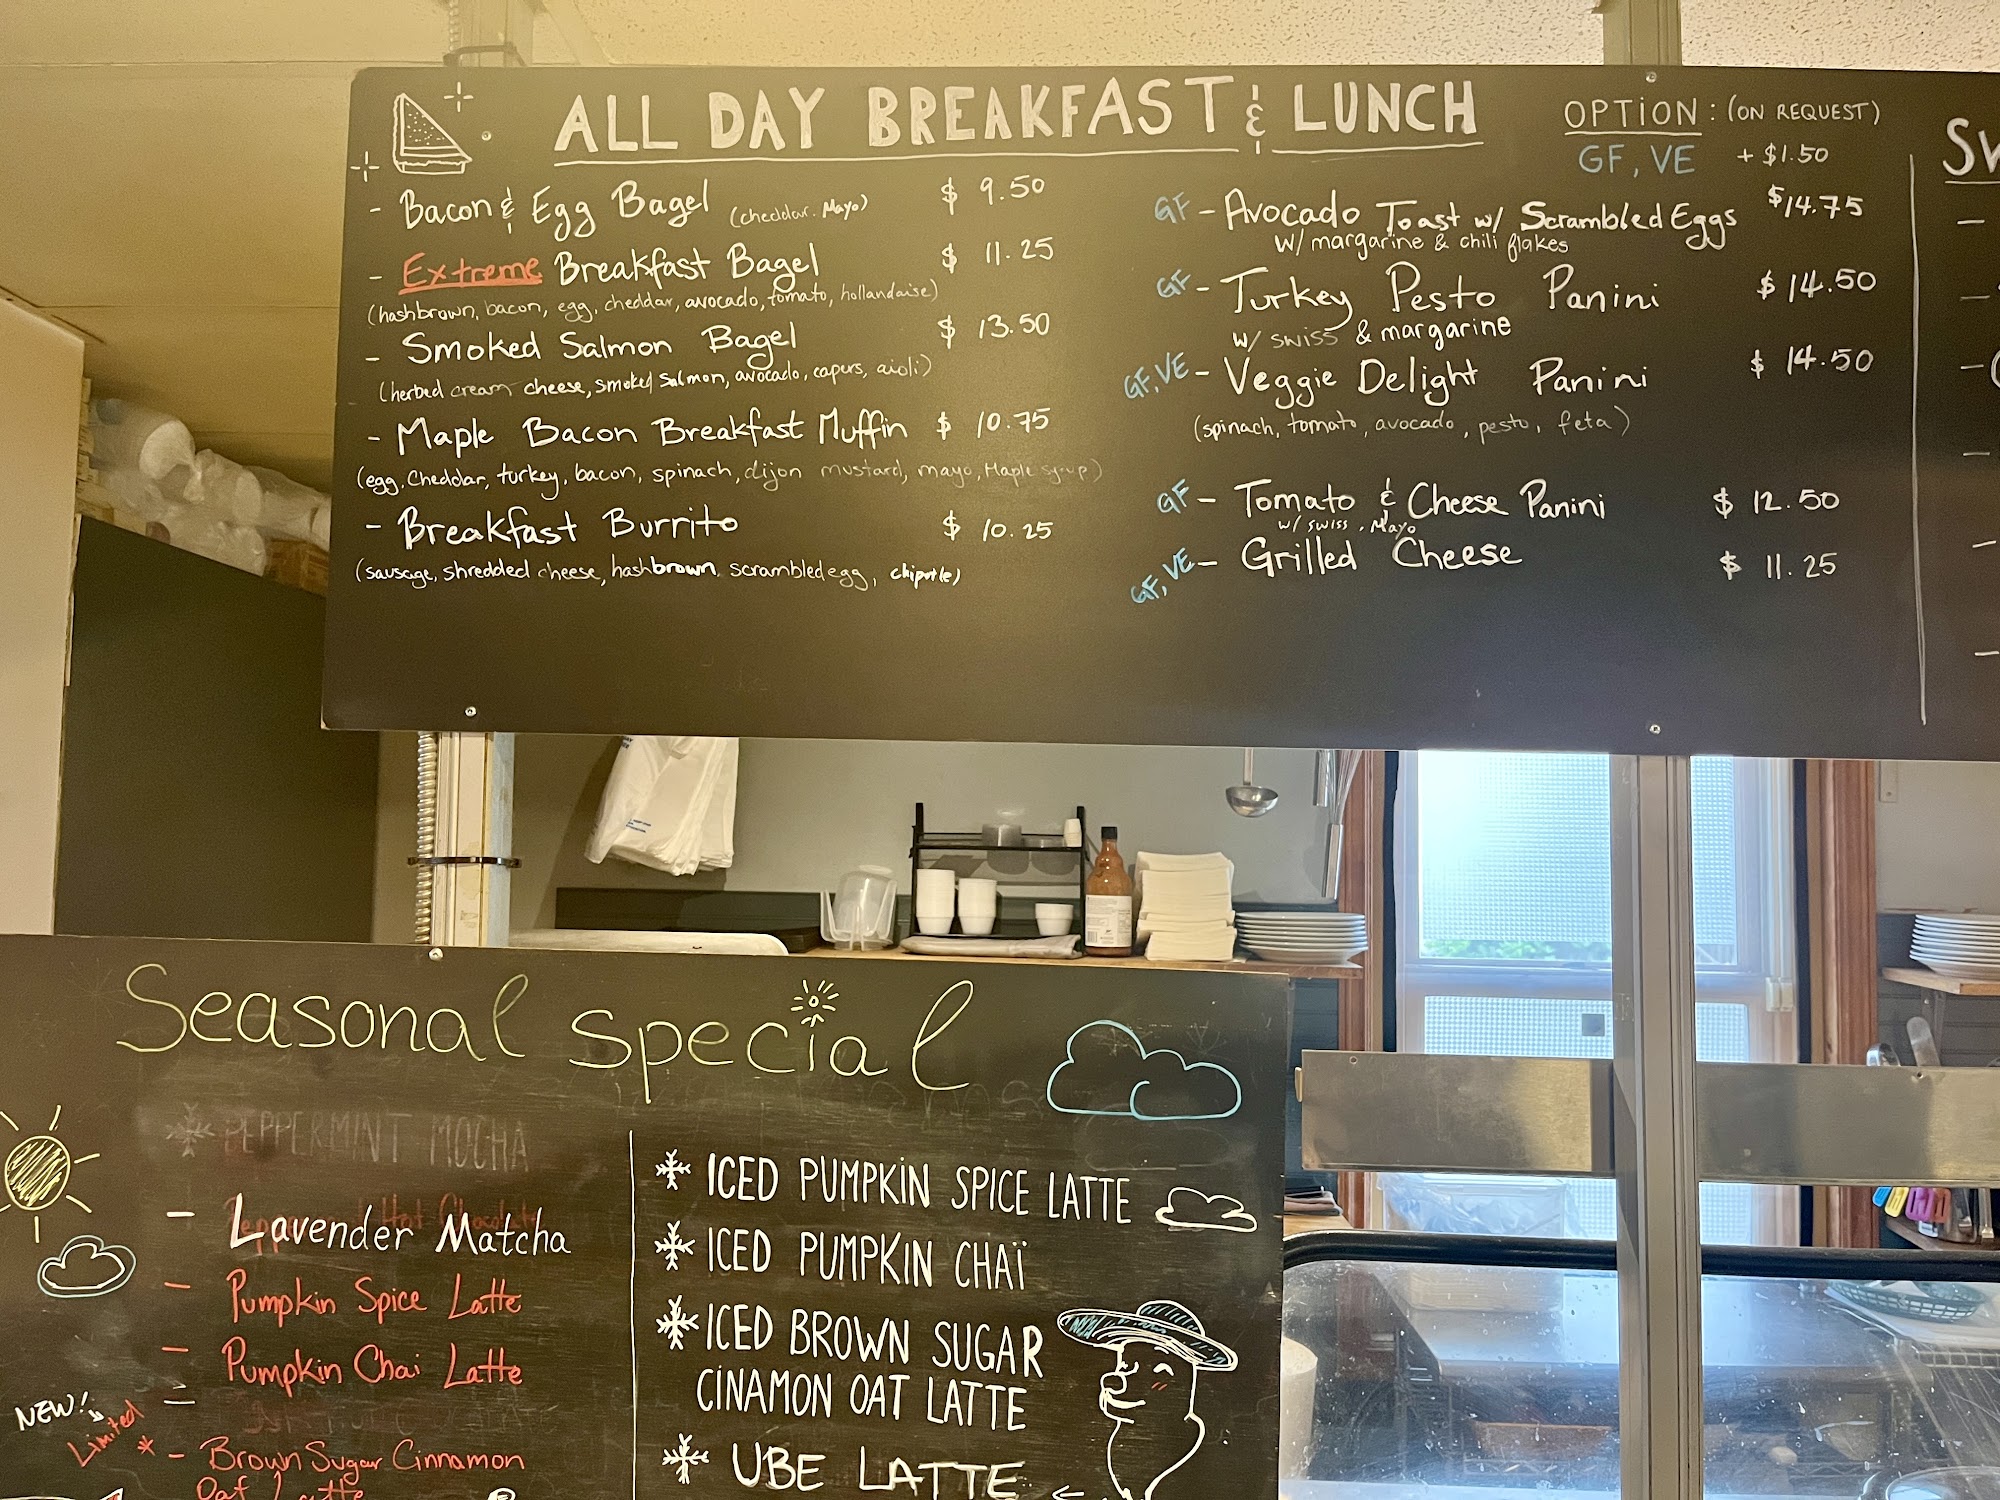 ALL DAY BREAKFAST & LUNCH
- Bacon & Egg Bagel (cheddar. Mayo) $ 9.50
- Extreme Breakfast Bagel $ 11.25
(hashbrown, bacon, egg, cheddar, avocado, tomato, hollandaise)
- Smoked Salmon Bagel $ 13.50
(herbed cream cheese, smoked salmon, avocado, capers, aioli)
- Maple Bacon Breakfast Muffin $ 10.75
(egg, Cheddar, turkey, bacon, spinach, dijon mustard, mayo, Maple syrup)
- Breakfast Burrito $ 10.25
(sausage, shredded cheese, hashbrown, scrambled egg, chipotle)
OPTION : (ON REQUEST)
GF, VE + $1.50
GF - Avocado Toast w/ Scrambled Eggs $14.75
w/ margarine & chili flakes
GF - Turkey Pesto Panini $ 14.50
w/ swiss & margarine
GF, VE - Veggie Delight Panini $ 14.50
(spinach, tomato, avocado, pesto, feta)
GF - Tomato & Cheese Panini $ 12.50
w/ swiss, Mayo
GF, VE - Grilled Cheese $ 11.25
Seasonal special
PEPPERMINT MOCHA
- Lavender Matcha
- Pumpkin Spice Latte
- Pumpkin Chai Latte
NEW!
Limited
* - Brown Sugar Cinnamon
Oat Latte
ICED PUMPKIN SPICE LATTE
ICED PUMPKIN CHAÏ
ICED BROWN SUGAR
CINAMON OAT LATTE
UBE LATTE